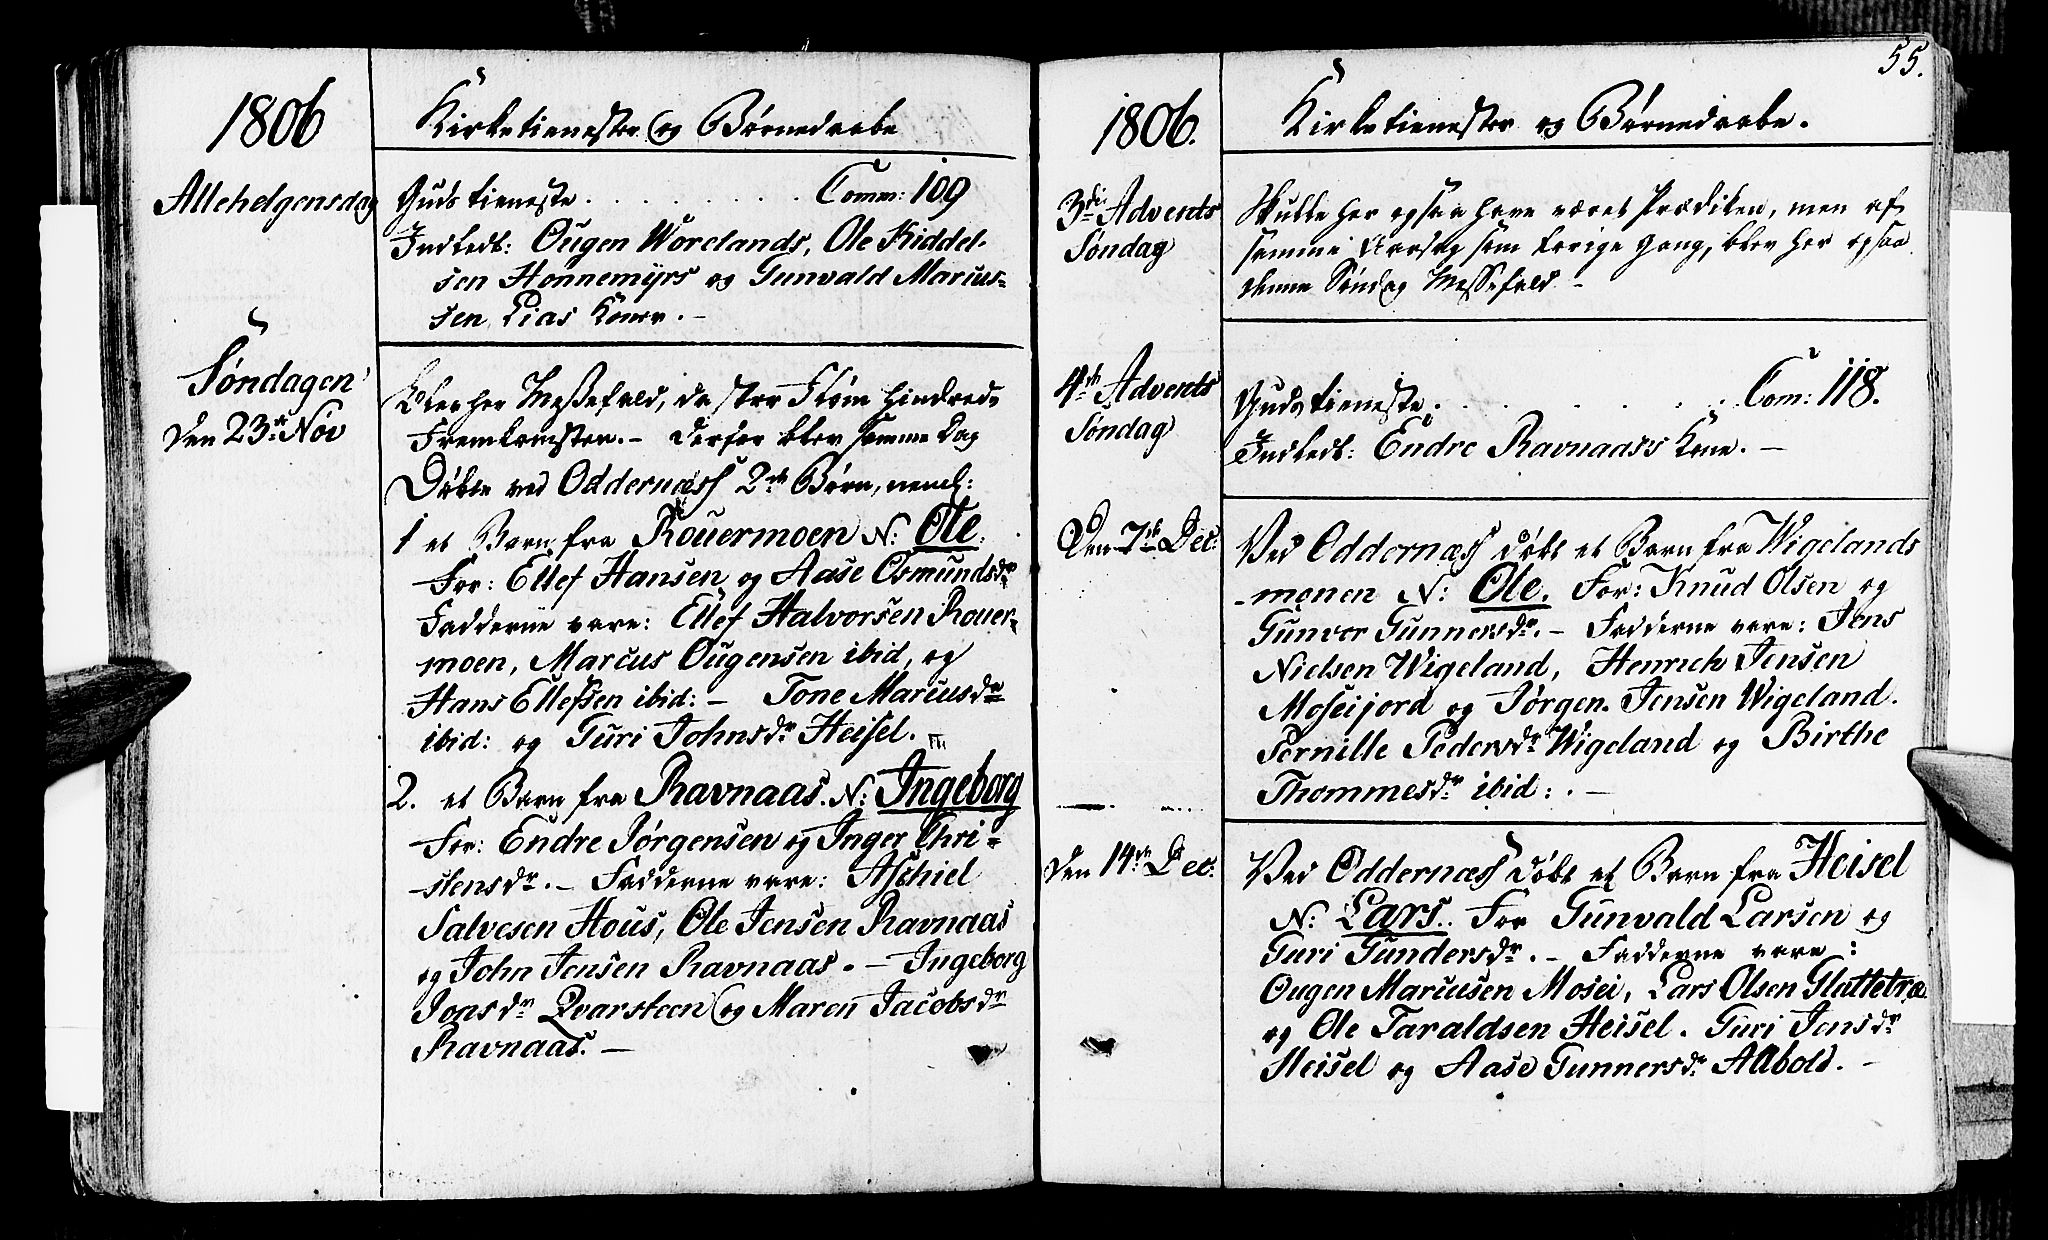 1806
Kirketienester og Børnedaabe
Allehelgensdag
Guds tieneste . . . . . . . . . Comm: 109
Indledt: Ougen Worelands, Ole Kiddel-
sen Honnemÿrs og Gunvald Marcus-
sen Lias Koner. -
Søndagen
den 23de Nov
Blev her Messefald, da stor Fløm hindrede
Fremkomsten. - Derfor blev samme Dag
Døbte ved Oddernæss 2de Børn, neml:
1 et Barn fra Rouermoen N: Ole.
For: Ellef Hansen og Aase Osmundsdr
Fadderne vare: Ellef Halvorsen Rouer-
moen, Marcus Ougensen ibid, og
Hans Ellefsen ibid: - Tone Marcusdr
ibid: og Turi Johnsdr Heisel.
2. et Barn fra Ravnaas. N: Ingeborg
For: Endre Jørgensen og Inger Chri-
stensdr. - Fadderne vare: Aschiel
Salvesen Hous, Ole Jensen Ravnaas
og John Jensen Ravnaas. - Ingeborg
Jonsdr Qvarsteen og Maren Jacobsdr
Ravnaas. -
55.
1806.
Kirketienester og Børnedaabe.
3die Advents
Søndag
Skulle her ogsaa have været Prædiken, men af
samme Aarsag som forrige Gang, blev her ogsaa
denne Søndag Messefald -
4de Advents
Søndag
Guds tieneste . . . . . . . Com: 118.
Indledt: Endre Ravnaass Kone. -
Den 7de Dec:
Ved Oddernæss døbt et Barn fra Wigelands
-monen N: Ole. For: Knud Olsen og
Gunvor Gunnersdr. - Fadderne vare: Jens
Nielsen Wigeland, Henrich Jensen
Moseijord og Jørgen Jensen Wigeland.
Pernille Pedersdr Wigeland og Birthe
Thommesdr ibid: . -
den 14de Dec:
Ved Oddernæss døbt et Barn fra Heisel
N: Lars. For Gunvald Larsen og
Turi Gundersdr. - Fadderne vare:
Ougen Marcusen Mosei, Lars Olsen Glattetræ
og Ole Taraldsen Heisel. Turi Jensdr
Heisel og Aase Gunnersdr Aabold. -